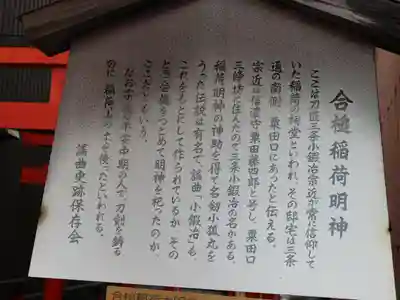 合槌稲荷明神
ここは刀匠三条小鍛冶宗近が常に信仰して
いた稲荷の祠堂といわれ、その邸宅は三条
通の南側、粟田口にあったと伝える。
宗近は信濃守粟田藤四郎と号し、粟田口
三条坊に住んだので三条小鍛冶の名がある。
稲荷明神の神助を得て名剣小狐丸を
うった伝説は有名で、謡曲「小鍛冶」も
これをもとにして作られているが、その
とき合槌をつとめて明神を祀ったのが
ここだともいう。
なお宗近は平安中期の人で刀剣を鋳る
のに稲荷山の土を使ったといわれる。
謡曲史跡保存会